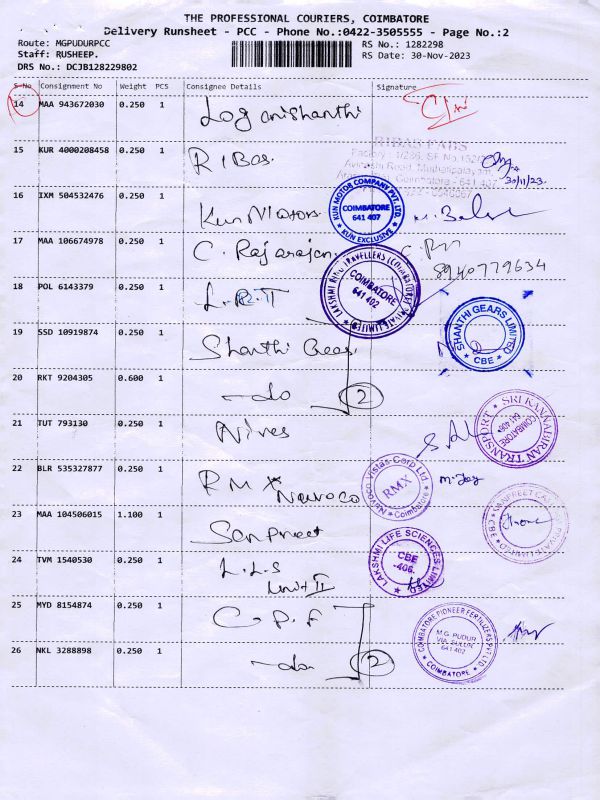 THE PROFESSIONAL COURIERS, COIMBATORE
Delivery Runsheet - PCC - Phone No.:0422-3505555 - Page No.:2
Route: MGPUDURPCC RS No.: 1282298
Staff: RUSHEEP. RS Date: 30-Nov-2023
DRS No.: DCJB128229802
S-No Consignment No Weight PCS Consignee Details Signature
14 MAA 943672030 0.250 1 Loganishanthi
RIBAS FABS
Factory : 1/286, SF No.152/
15 KUR 4000208458 0.250 1 RIBas.
Avinashi Road, Muthalipalayam
Coimbatore - 641 407
30/11/23.
16 IXM 504532476 0.250 1 Kun Motors. KUN MOTOR COMPANY PVT. LTD. COIMBATORE 641 407 * KUN EXCLUSIVE *
17 MAA 106674978 0.250 1 C. Rajarajan.
8940779634
18 POL 6143379 0.250 1 L.R.T COIMBATORE 641 402
19 SSD 10919874 0.250 1 Shanthi Gears. SHANTHI GEARS LIMITED * CBE *
20 RKT 9204305 0.600 1 -do 2
21 TUT 793130 0.250 1 Nives SRI KANNABIRAN TRANSPORT * COIMBATORE
22 BLR 535327877 0.250 1 RMX Nuvoco Nuvoco Vistas Corp Ltd. RMX Coimbatore
23 MAA 104506015 1.100 1 Sanpreet
24 TVM 1540530 0.250 1 L.L.S Unit II LAKSHMI LIFE SCIENCES LIMITED CBE -406.
25 MYD 8154874 0.250 1 C.P.F COIMBATORE PIONEER FERTILIZERS PVT LTD M.G. PUDUR VIA. SULUR 641 402 * COIMBATORE *
26 NKL 3288898 0.250 1 -do- 2